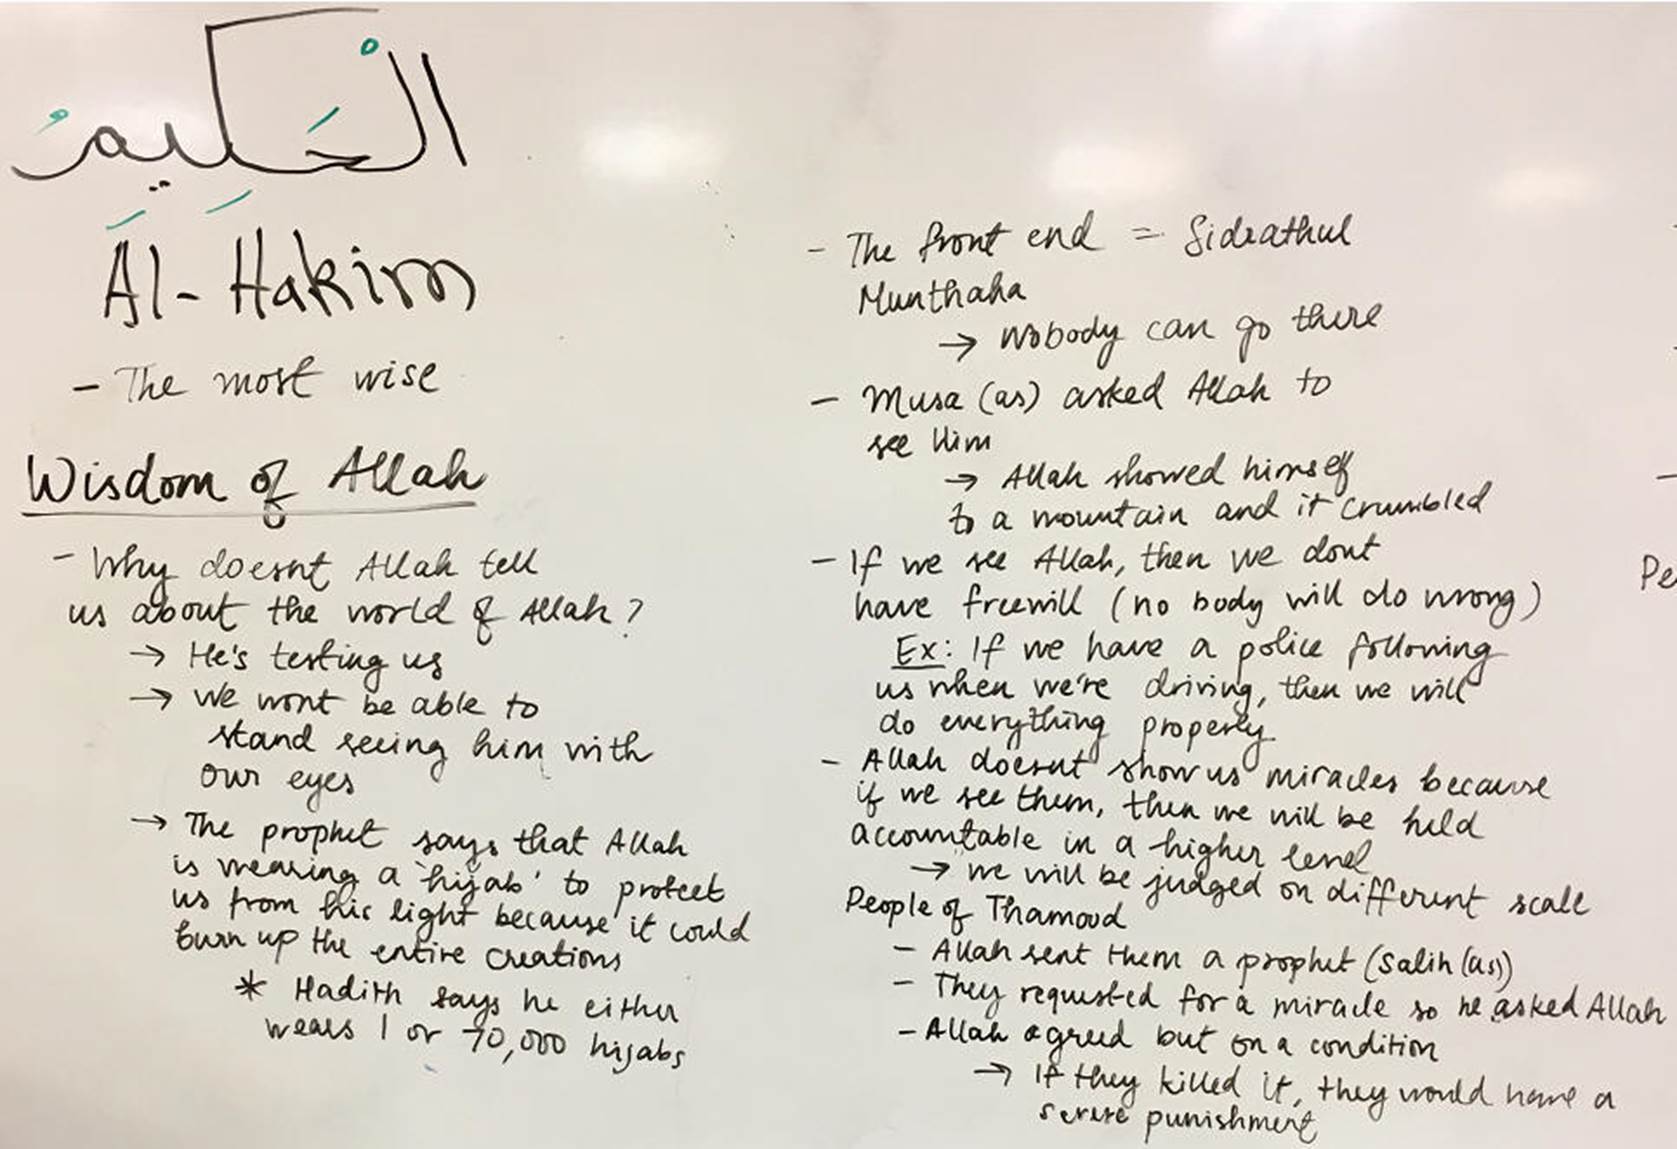 الْحَكِيمُ
Al-Hakim
- The most wise
Wisdom of Allah
- Why doesnt Allah tell
us about the world of Allah?
→ He's testing us
→ We wont be able to
stand seeing him with
our eyes
→ The prophet says that Allah
is wearing a 'hijab' to protect
us from his light because it could
burn up the entire creations
* Hadith says he either
wears 1 or 70,000 hijabs
- The front end = Sidrathul
Munthaha
→ Nobody can go there
- Musa (as) asked Allah to
see Him
→ Allah showed himself
to a mountain and it crumbled
- If we see Allah, then we dont
have freewill (no body will do wrong)
Ex: If we have a police following
us when we're driving, then we will
do everything properly
- Allah doesnt show us miracles because
if we see them, then we will be held
accountable in a higher level
→ we will be judged on different scale
People of Thamoud
- Allah sent them a prophet (Salih (as))
- They requested for a miracle so he asked Allah
- Allah agreed but on a condition
→ If they killed it, they would have a
severe punishment
Pe